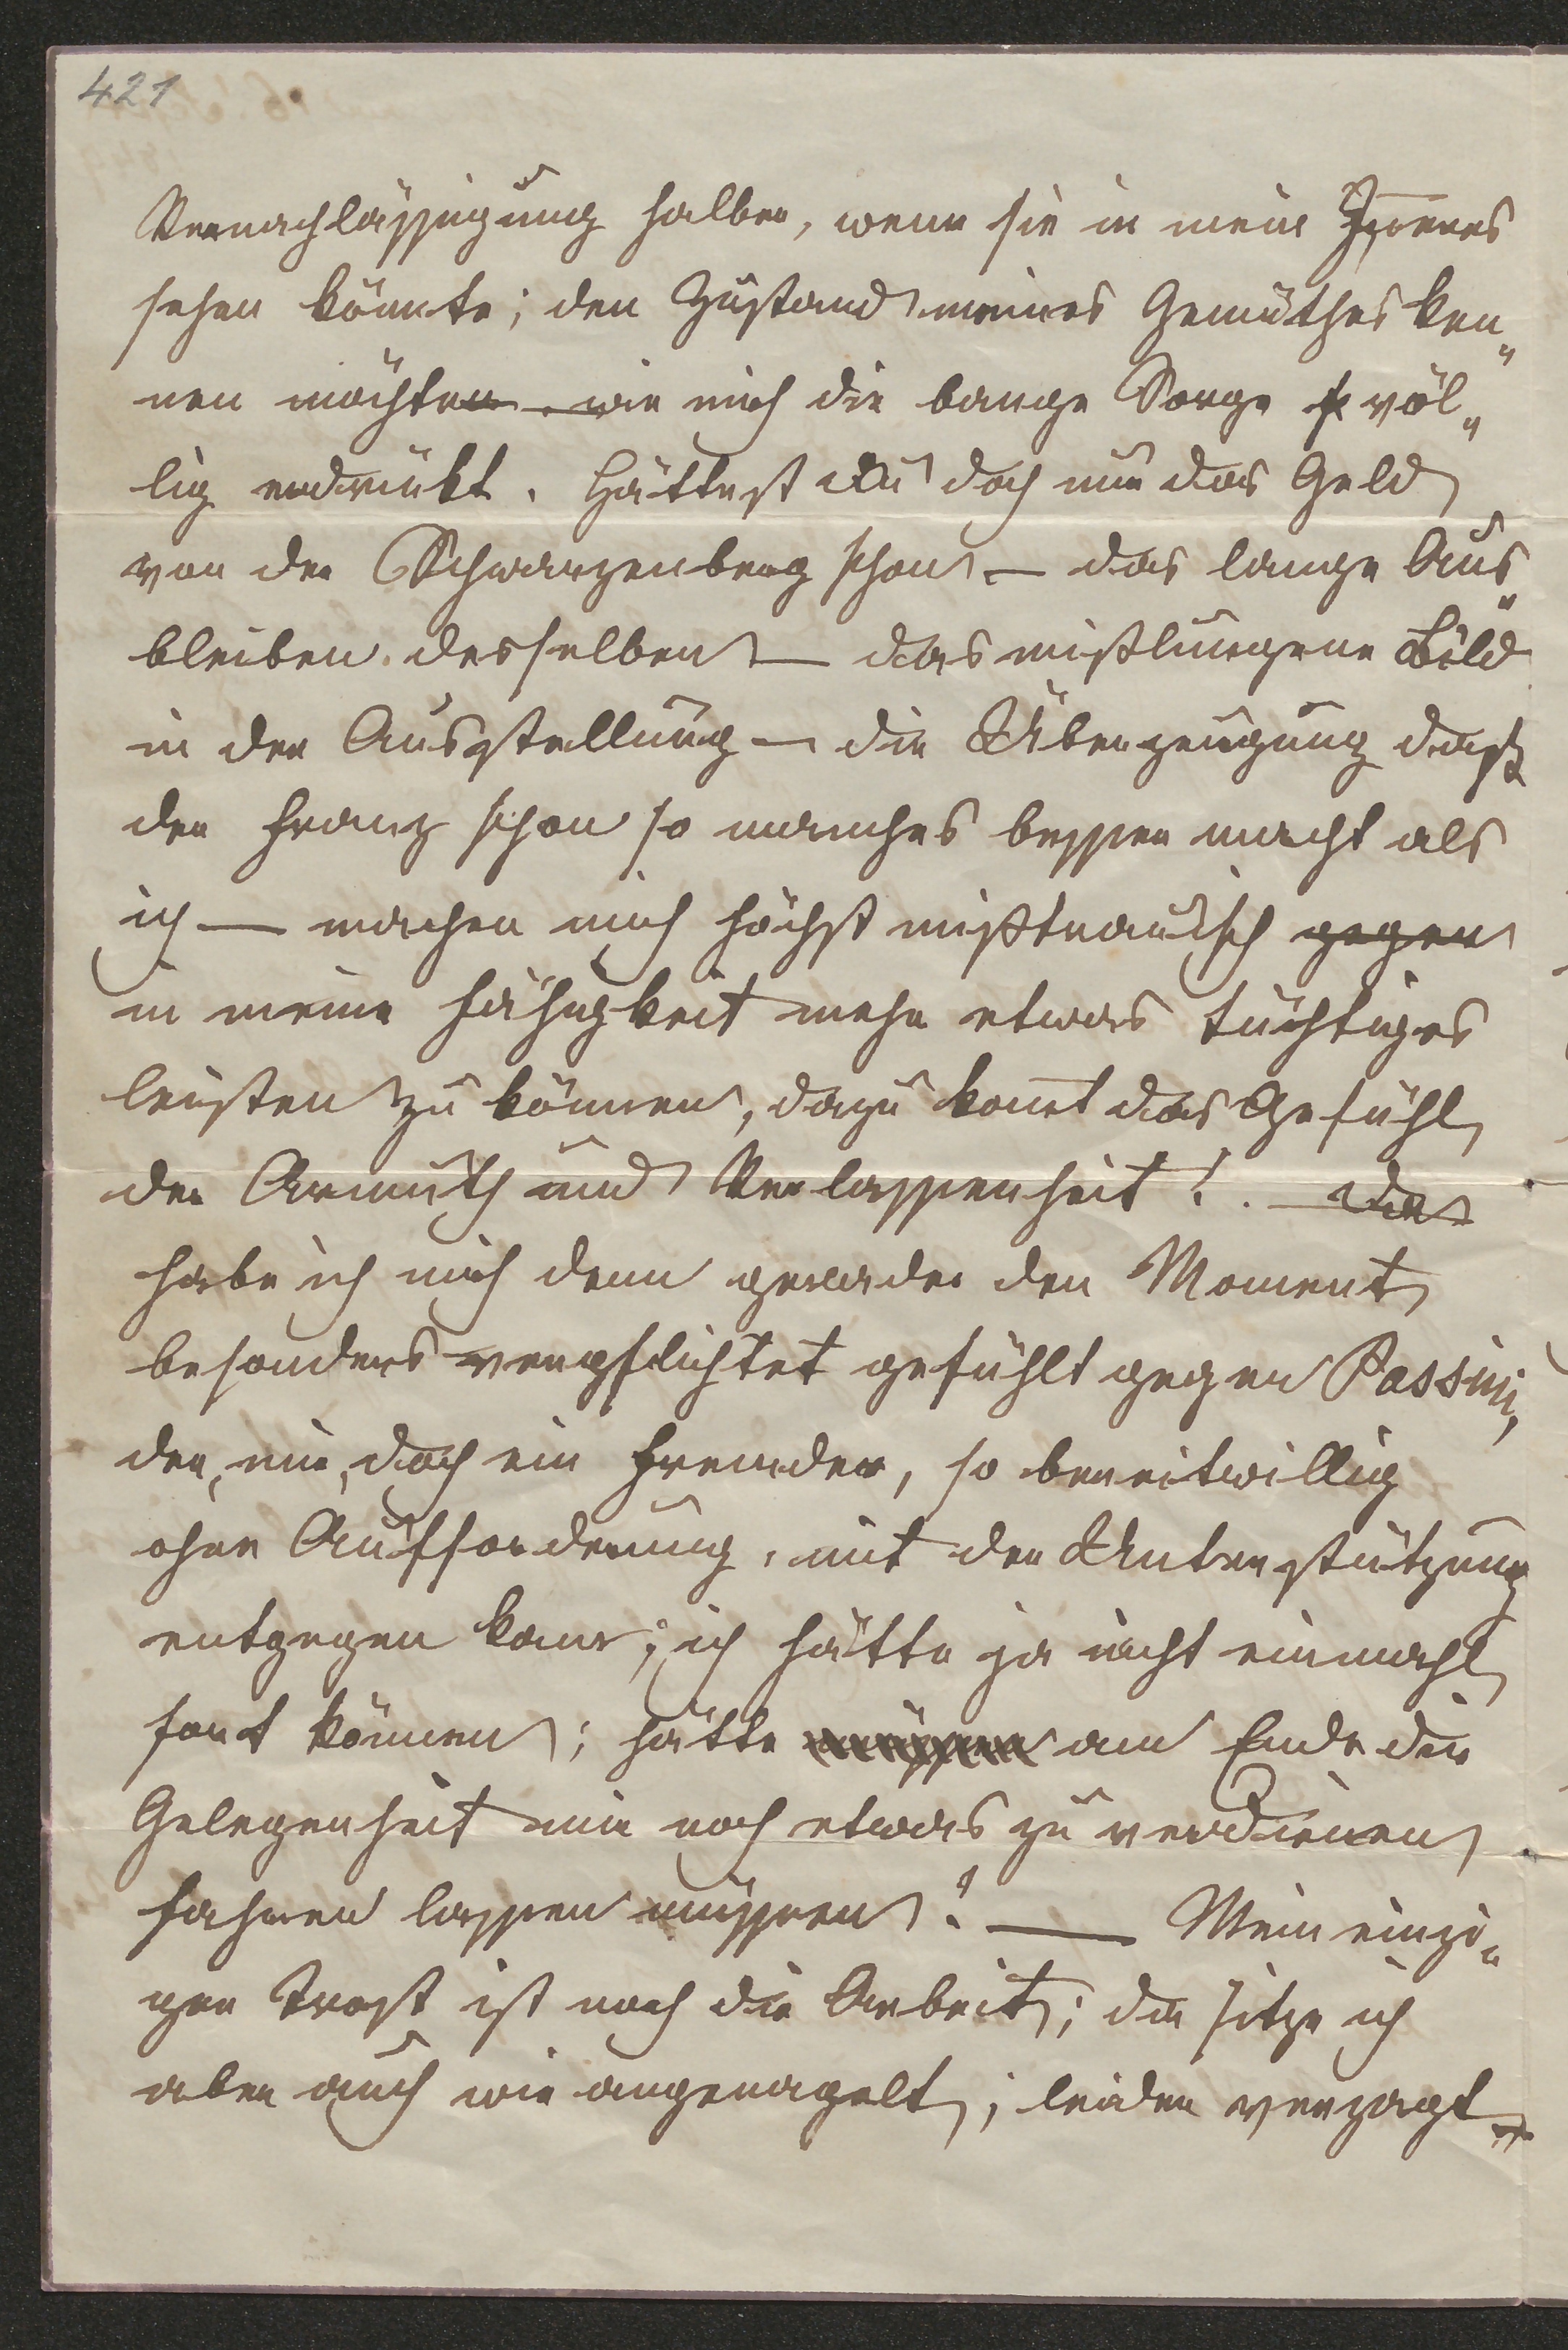 421
Vernachlässigung halber, wenn sie in mein Inneres
sehen könnte; den Zustand meines Gemüthes ken„
nen möchten wie mich die bange Sorge völ„
lig erdrückt. Hättest Du doch nur das Geld
von der Schwarzenberg schon — das lange Aus„
bleiben desselben — das mißlungene Bild
in der Ausstellung — die Überzeugung daß
der Franz schon so manches besser macht als
ich — machen mich höchst mißtrauisch gegen
in meine Fähigkeit mehr etwas tüchtiges
leisten zu können, dazu kom̅t das Gefühl
der Armuth und Verlassenheit! — da
habe ich mich denn gerade den Moment
besonders verpflichtet gefühlt gegen Passini,
der, mir, doch ein Fremder, so bereitwillig
ohne Aufforderung, mit der Unterstützung
entgegen kam; ich hätte ja nicht einmahl
fort können; hätte müssen am Ende die
Gelegenheit mir noch etwas zu verdienen
fahren lassen müssen? — Mein einzi„
ger Trost ist noch die Arbeit; da sitze ich
aber auch wie angenagelt; leider verzagt